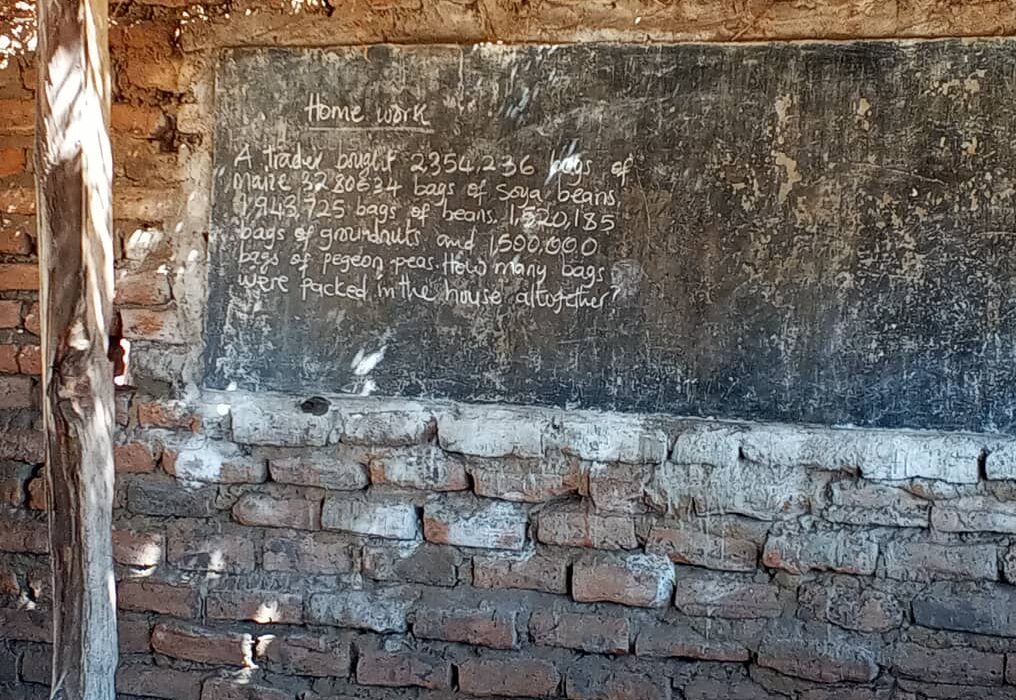 Home work
A trader bought 2354,236 bags of
maize 3280634 bags of Soya beans,
1,943,725 bags of beans, 1,520,185
bags of groundnuts and 1,500,000
bags of pegeon peas. How many bags
were packed in the house altogether?